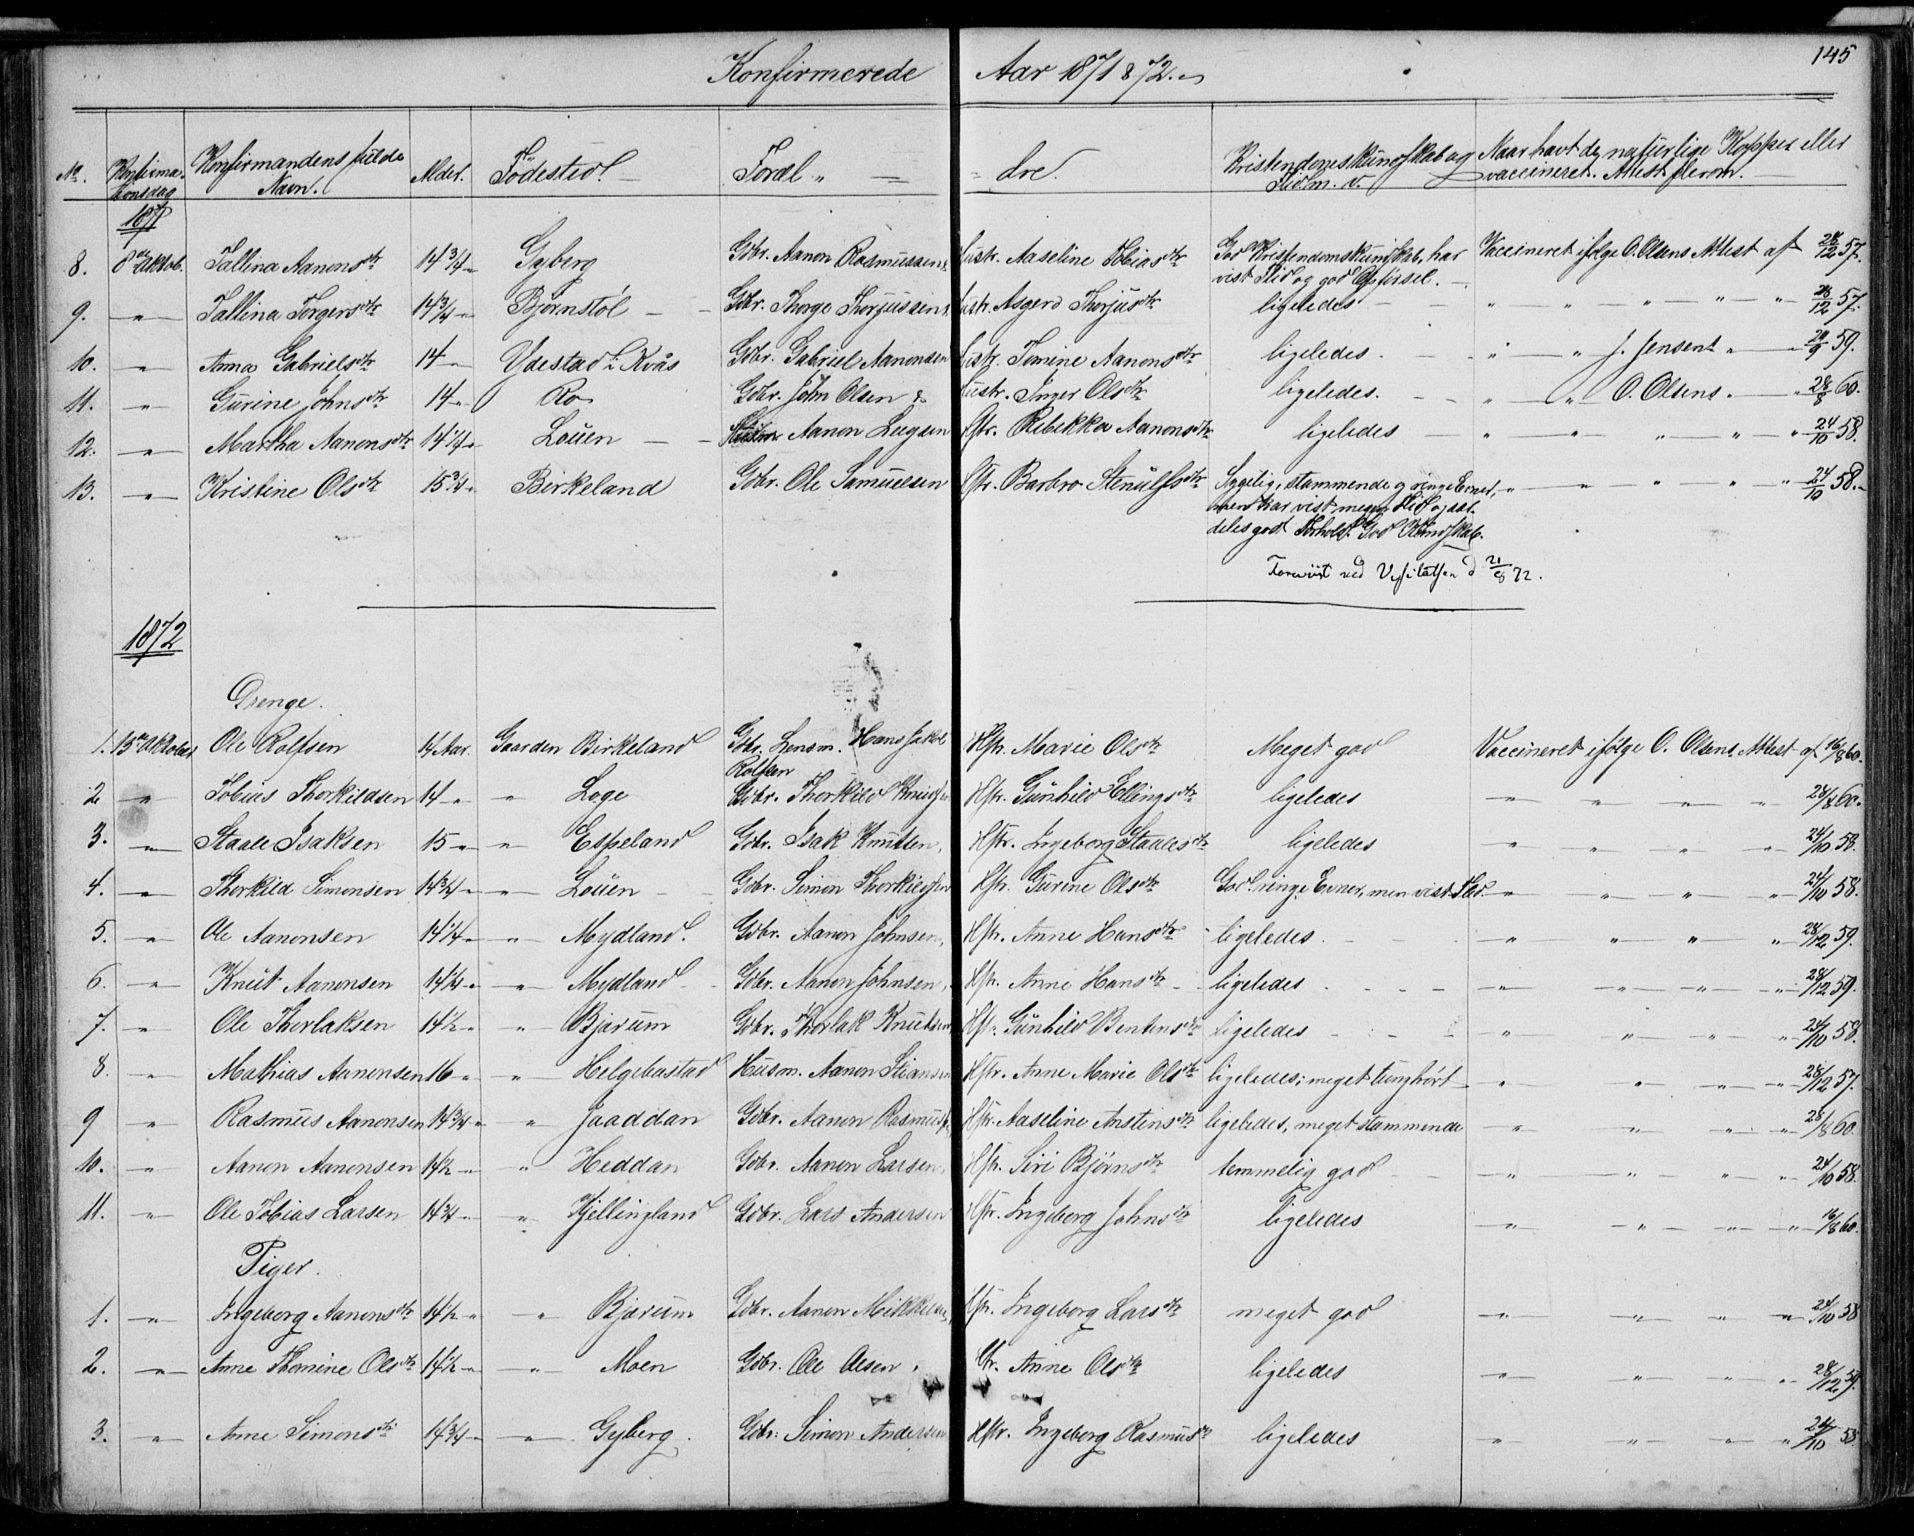 145
Konfirmerede Aar 1871 & 72.
No. Konfirmationsdag Konfirmandens fulde Navn. Alder. Fødested Foræl- dre. Kristendomskundskab og Flid m. v. Naar havt de naturlige Kopper eller vaccineret. Attest derom.
1871
8. 8de Oktob. Tallina Aanonsdtr 14 3/4 Gyberg Gdbr. Aanon Rasmussen Hustr. Aaseline Tobiasdtr God Kristendomskundskab, har Vaccineret ifølge O. Olsens Attest af 28/12 57.
vist Flid og god Opførsel.
9. " Tallina Torgersdtr 14 3/4 " Bjørnstøl Gdbr. Thorge Thorjussen Hustr. Asgerd Thorjusdtr ligeledes " " " " " 28/12 57.
10. " Anna Gabrielsdtr 14 " Ydestad i Kvås Gdbr. Gabriel Aanonsen Hustr. Tomine Aanonsdtr ligeledes. " " J. Jensens " 20/9 59.
11. " Gurine Johnsdtr 14 " Ro Gdbr. John Olsen & Hustr. Inger Olsdtr ligeledes. " " O. Olsens " 28/8 60.
12. " Martha Aanonsdtr 14 1/4 " Louen Aanon Hstr. Rebekka Aanonsdtr ligeledes " " " " " 24/10 58.
13. " Kristine Olsdtr 15 3/4 " Birkeland Gdbr. Ole Samuelsen Hstr. Barbro Stenulfsdtr Sygelig, stammende og ringe Evner, " " " " " 24/10 58.
men har vist megen Flid og
deles godt Forhold. God
Foreviist ved Visitatsen d 21/8 72.
1872
Drenge.
1. 13de Oktober Ole Rolfsen 14 Aar. Gaarden Birkeland Gdbr. Lensm. Hans Jakob Hstr. Marie Olsdtr Meget god Vaccineret ifølge O. Olsens Attest af 16/8 60.
Rolfsen
2 " Tobias Thorkildsen 14 " " Loge Gdbr. Thorkild Knudsen Hstr. Gunhild Ellingsdtr ligeledes " " " " 28/8 60.
3. " Staale Isaksen 15 " " Espeland Gdbr. Isak Knutsen, Hstr. Ingeborg Staalesdtr ligeledes " " " " 24/10 58.
4. " Thorkild Simonsen 14 3/4 " " Louen Gdbr. Simon Thorkildsen Hstr. Gurine Olsdtr God. ringe Evner, men vist Flid. " " " " 24/10 58.
5. " Ole Aanonsen 14 1/4 " " Mydland. Gdbr. Aanon Johnsen, Hstr. Anne Hansdtr ligeledes. " " " " 28/12 59.
6. " Knut Aanonsen 14 1/4 " " Mydland Gdbr. Aanon Johnsen, Hstr. Anne Hansdtr ligeledes " " " " 28/12 59.
7. " Ole Thorlaksen 14 1/2 " " Bjærum Gdbr. Thorlak Knutsen Hstr. Gunhild Bentensdtr ligeledes " " " " 24/10 58.
8. " Mathias Aanonsen 16 " " Helgebostad Husm. Aanon Stiansen Hstr. Anne Marie Olsdtr ligeledes; meget tunghørt " " " " 28/12 57.
9 " Rasmus Aanonsen 14 3/4 " " Jaaddan Gdbr. Aanon Rasmuss. Hstr. Aaseline Anstensdtr ligeledes, meget stammende " " " " 28/8 60.
10. " Aanon Aanonsen 14 1/2 " " Heddan Gdbr. Aanon Larsen, Hstr. Siri Bjørnsdtr temmelig god " " " " 24/10 58.
11. " Ole Tobias Larsen 14 3/4 " " Kjellingland Gdbr. Lars Andersen Hstr. Ingeborg Johnsdtr ligeledes " " " " 16/8 60.
Piger.
1. " Ingeborg Aanonsdtr 14 1/2 " " Bjærum Gdbr. Aanon Mikkelsen, Hstr. Ingeborg Larsdtr meget god " " " " 24/10 58
2. " Anne Thomine Olsdtr 14 1/2 " " Moen Gdbr. Ole Olsen, Hstr. Anne Olsdtr ligeledes " " " " 28/12 59.
3. " Anne Simonsdtr 14 3/4 " " Gyberg. Gdbr. Simon Andersen Hstr. Ingeborg Rasmusdtr ligeledes " " " " 24/10 58